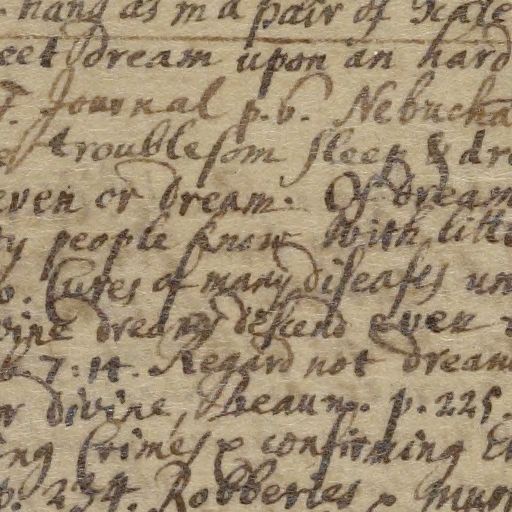 hang as in a pair of Scale
eet dream upon an hard
Journal p. v. Nebucha
troublesom sleep & dre
even or dream. Of dream
ty people know With littl
Cures of many diseases un
vine dreams descend even
7:14. Regard not dream
or divine, Beaum. p. 225.
ing Crimes & confirming
p. 234. Robberies & mur